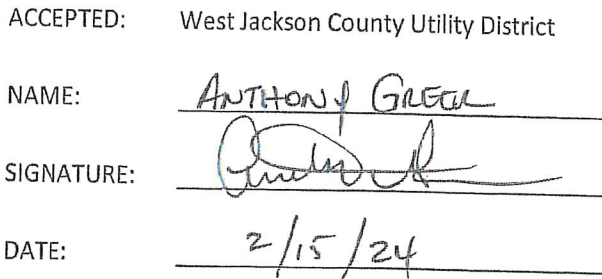 ACCEPTED: West Jackson County Utility District
NAME: ANTHONY GREER
SIGNATURE:
DATE: 2/15/24